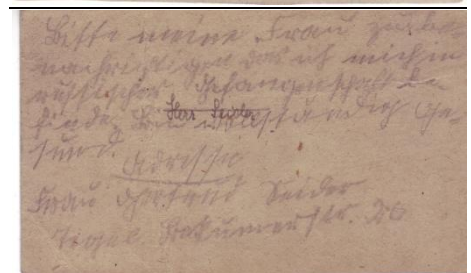 Bitte meine Frau zu be-
nachrichtigen das ich mich in
russischer Gefangenschaft be-
finde. Bin vollständig ge-
sund.
Adresse
Frau Gertrud Seider
Tegel. Str. 26